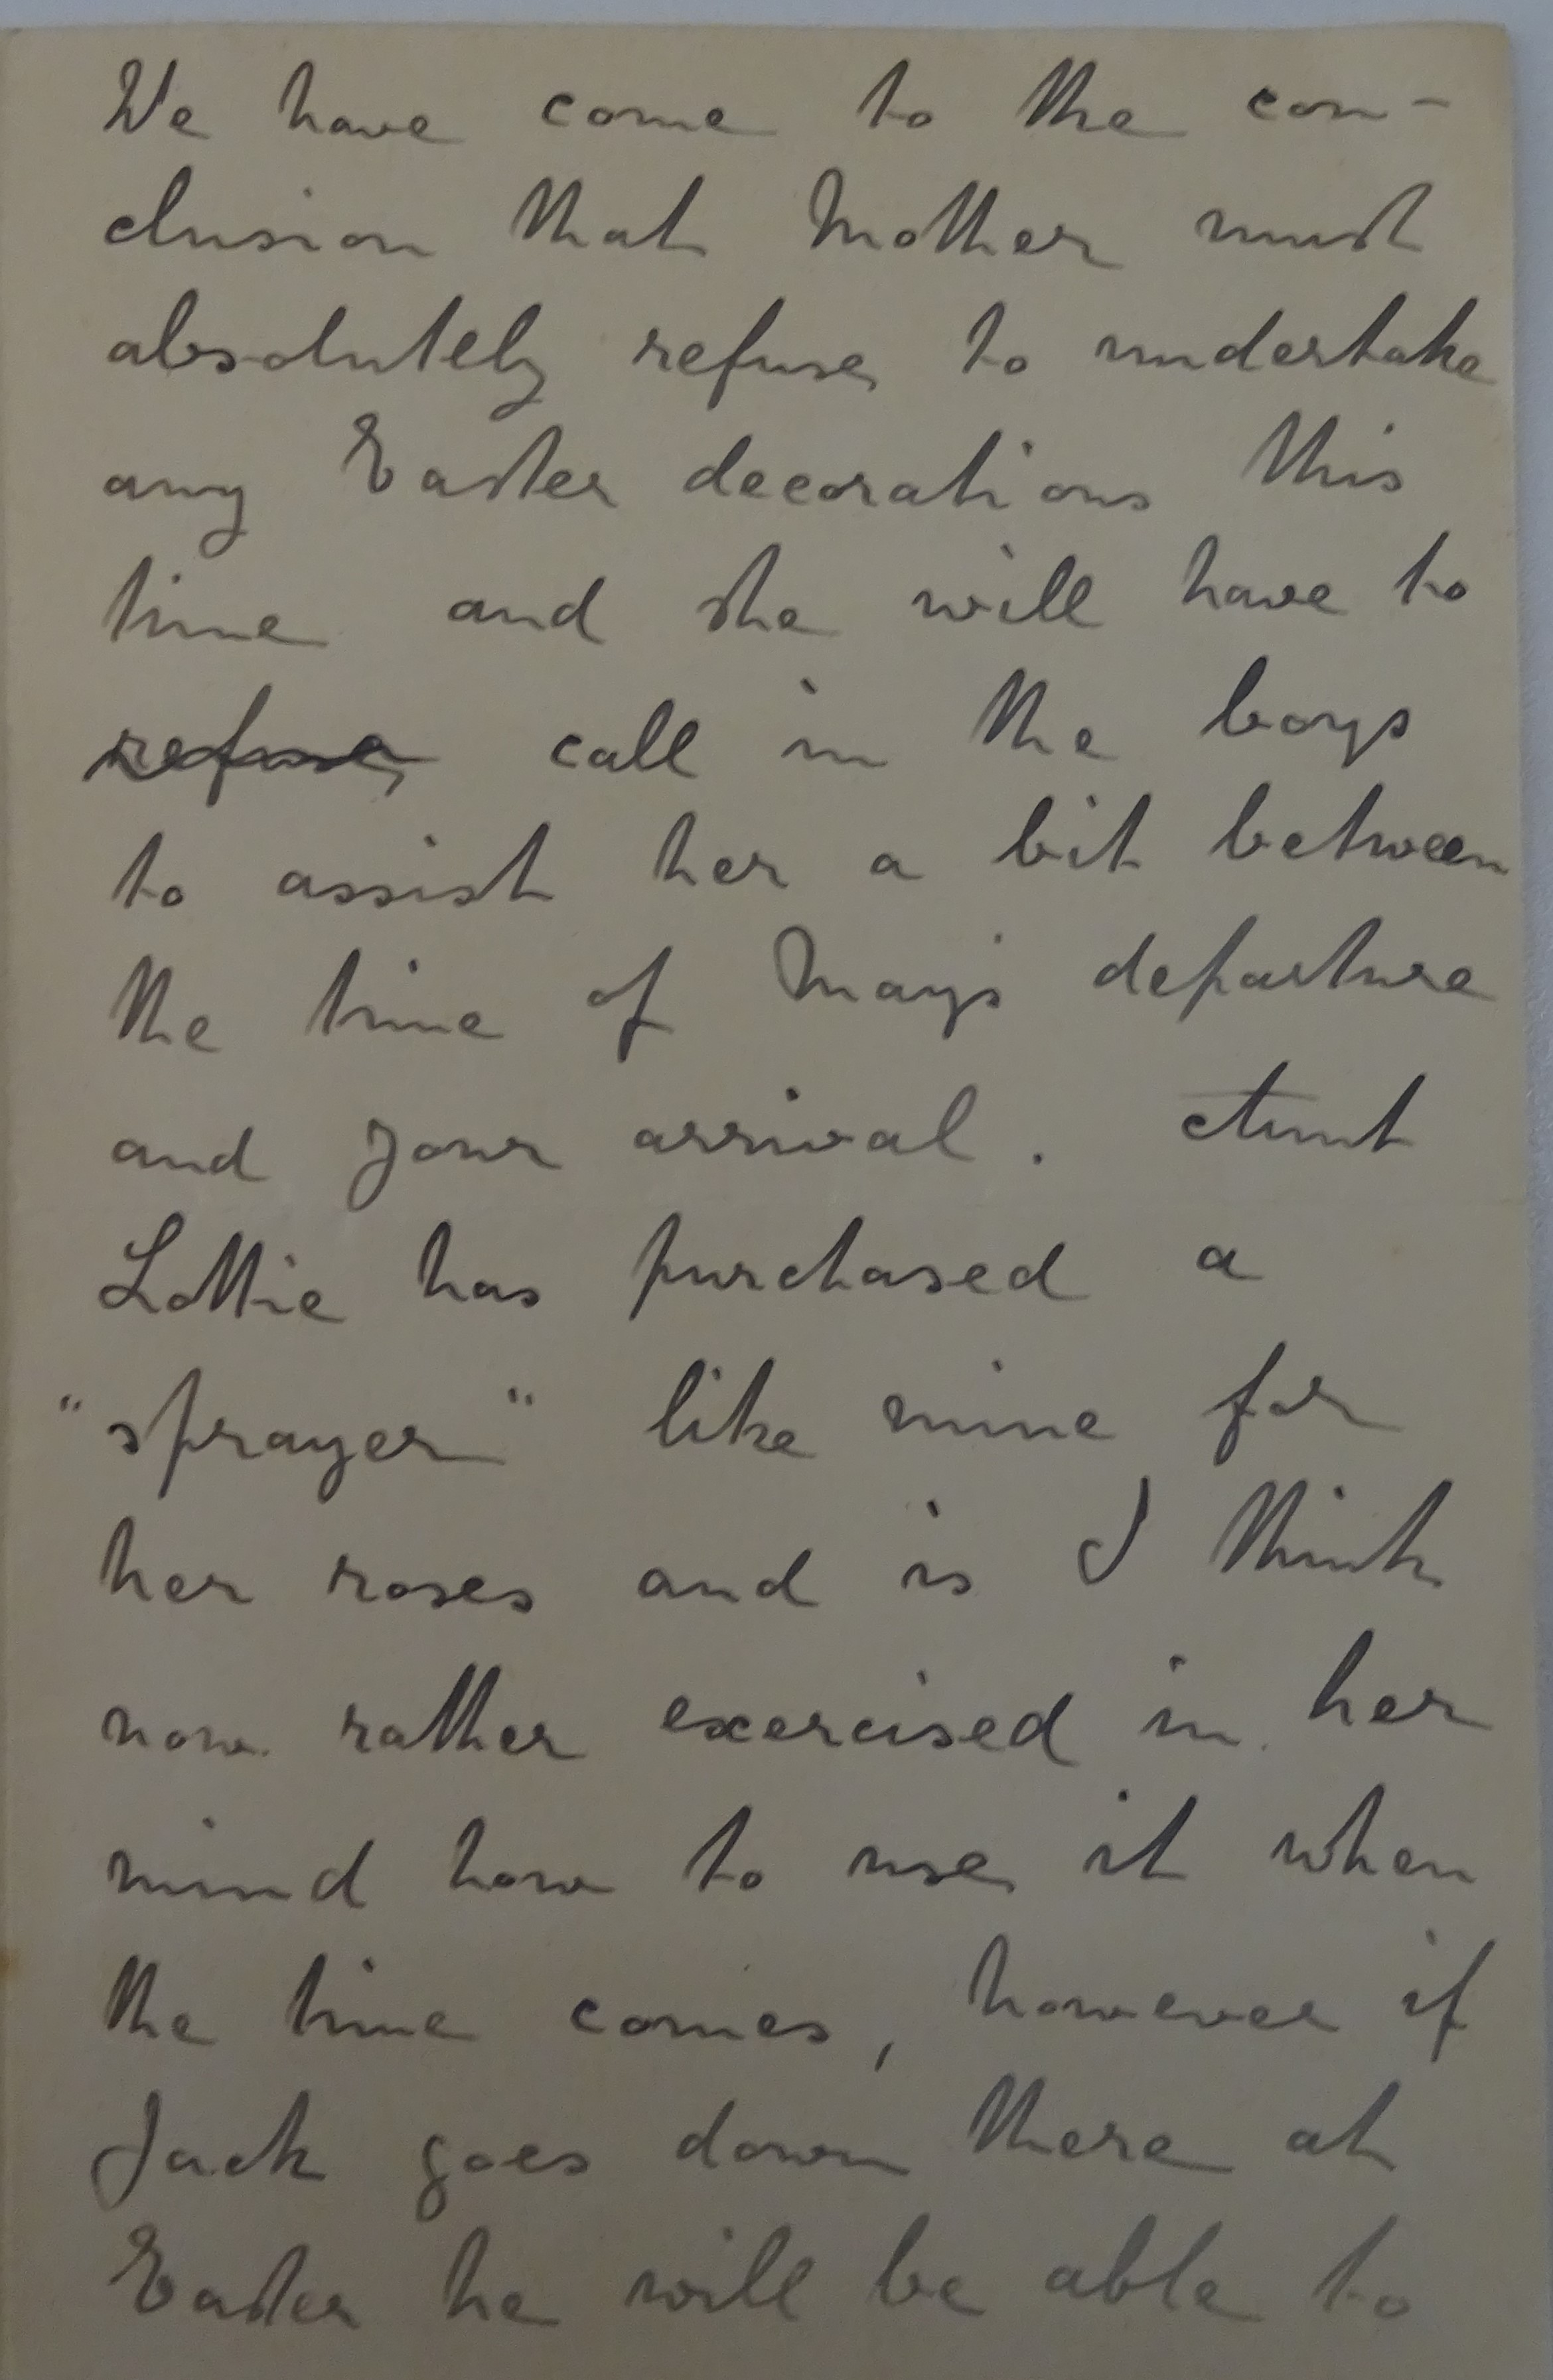 We have come to the con-
clusion that Mother must
absolutely refuse to undertake
any Easter decorations this
time and she will have to
refuse call in the boys
to assist her a bit between
the time of May's departure
and your arrival. Aunt
Lottie has purchased a
"sprayer" like mine for
her roses and is I think
now rather exercised in her
mind how to use it when
the time comes, however if
Jack goes down there at
Easter he will be able to